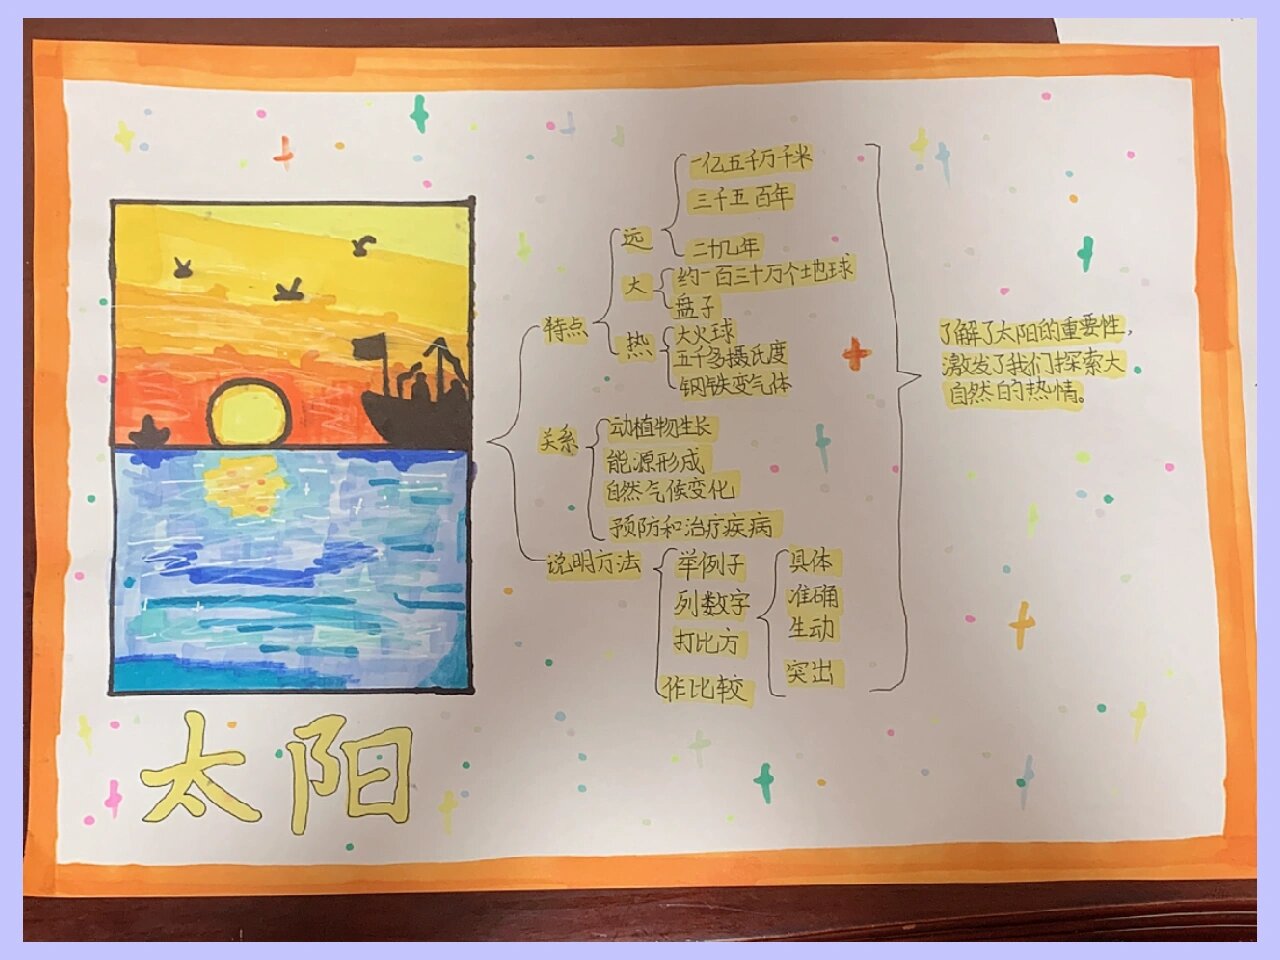 一亿五千万千米
三千五百年
远
二十几年
大
约一百三十万个地球
盘子
特点
热
大火球
五千多摄氏度
钢铁变气体
了解了太阳的重要性，
激发了我们探索大
自然的热情。
关系
动植物生长
能源形成
自然气候变化
预防和治疗疾病
说明方法
举例子
列数字
打比方
作比较
具体
准确
生动
突出
太阳